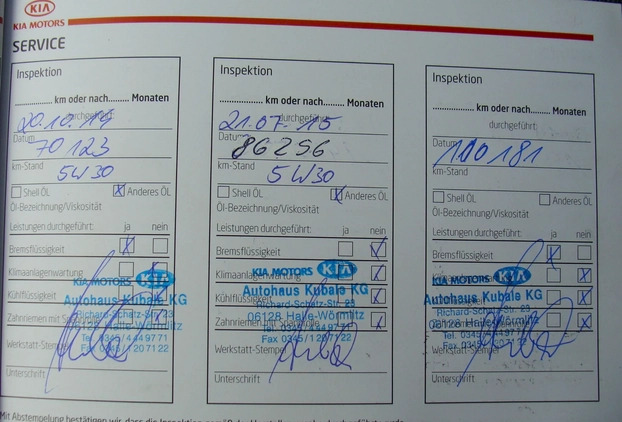 KIA
KIA MOTORS
SERVICE
Inspektion
............... km oder nach........ Monaten
durchgeführt:
20.10.14
Datum
70 123
km-Stand
5W30
Shell ÖL Anderes ÖL
Öl-Bezeichnung/Viskosität
Leistungen durchgeführt: ja nein
Bremsflüssigkeit
Klimaanlagenwartung
Kühlflüssigkeit
Autohaus Kubala KG
Richard-Schatz-Str. 23
Zahnriemen mit
06128 Halle-Wörmlitz
Tel. 0345/4449771
Werkstatt-Stempel
Fax 0345/1207122
Unterschrift
Inspektion
............... km oder nach........ Monaten
durchgeführt:
21.07.15
Datum
86256
km-Stand
5W30
Shell ÖL Anderes ÖL
Öl-Bezeichnung/Viskosität
Leistungen durchgeführt: ja nein
Bremsflüssigkeit
Klimaanlagenwartung
KIA MOTORS KIA
Kühlflüssigkeit
Autohaus Kubala KG
Richard-Schatz-Str. 23
Zahnriemen mit
06128 Halle-Wörmlitz
Tel. 0345/4449771
Fax 0345/1207122
Werkstatt-Stempel
Unterschrift
Inspektion
............... km oder nach........ Monaten
durchgeführt:
Datum
100181
km-Stand
Shell ÖL Anderes ÖL
Öl-Bezeichnung/Viskosität
Leistungen durchgeführt: ja nein
Bremsflüssigkeit
KIA MOTORS KIA
Autohaus Kubala KG
Richard-Schatz-Str. 23
06128 Halle-Wörmlitz
Tel. 0345/4449771
Werkstatt-Stempel
Fax 0345/1207122
Unterschrift
Mit Abstempelung bestätigen wir, dass die Inspektion gemäß